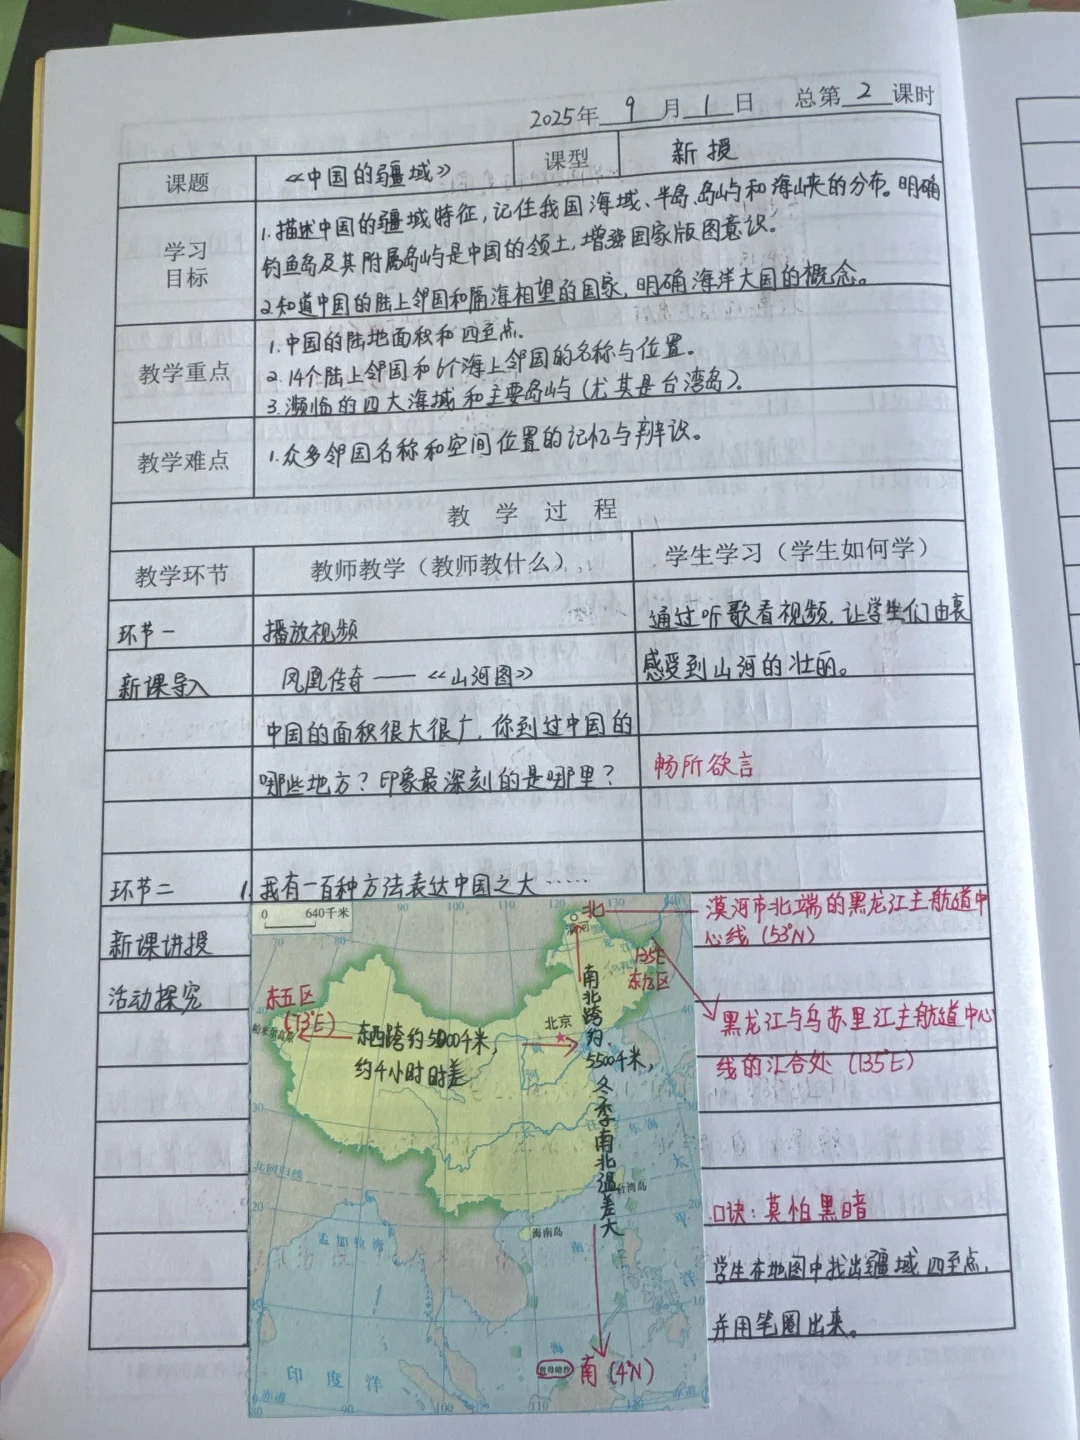 2025年 9 月 1 日 总第 2 课时
课题 《中国的疆域》 课型 新授
学习目标
1.描述中国的疆域特征,记住我国海域、半岛、岛屿和海峡的分布。明确
钓鱼岛及其附属岛屿是中国的领土,增强国家版图意识。
2.知道中国的陆上邻国和隔海相望的国家,明确海洋大国的概念。
教学重点
1.中国的陆地面积和四至点。
2.14个陆上邻国和6个海上邻国的名称与位置。
3.濒临的四大海域和主要岛屿(尤其是台湾岛)。
教学难点
1.众多邻国名称和空间位置的记忆与辨识。
教 学 过 程
教学环节 教师教学(教师教什么) 学生学习(学生如何学)
环节一 播放视频 通过听歌看视频,让学生们由衷
新课导入 凤凰传奇——《山河图》 感受到山河的壮丽。
中国的面积很大很广,你到过中国的
哪些地方?印象最深刻的是哪里? 畅所欲言
环节二 1.我有一百种方法表达中国之大……
新课讲授
活动探究
0 640千米
90 100 110 120 130 140
70 80
北
漠河市北端的黑龙江主航道中
心线(53°N)
135°E
东九区
黑龙江与乌苏里江主航道中心
线的汇合处(135°E)
东五区
(73°E)
帕米尔高原
东西跨约5000千米,
约4小时时差
北京
南北跨约5500千米,冬季南北温差大
40
30
北回归线
20
10
河
长
东海
台湾岛
海南岛
孟加拉湾
南
海
太
平
洋
口诀:莫怕黑暗
学生在地图中找出疆域四至点,
并用笔圈出来。
曾母暗沙
南(4°N)
印度洋
赤道
80 90 100 110 120
赤道